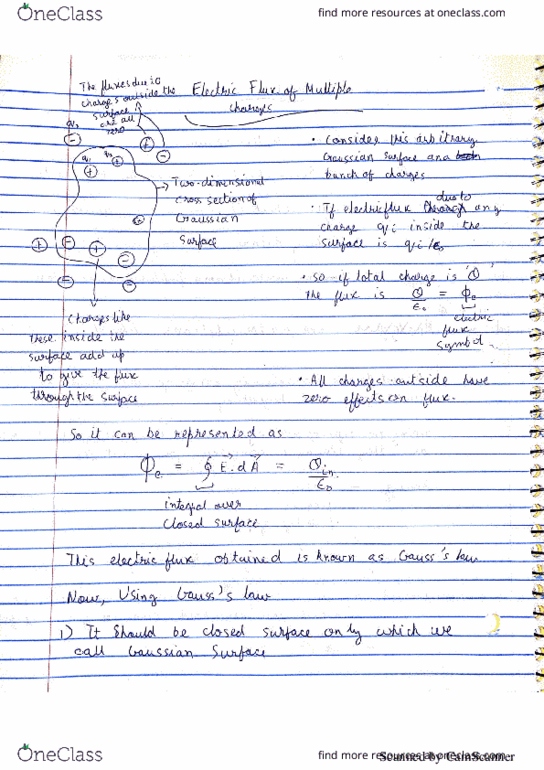 OneClass
find more resources at oneclass.com
The fluxes due to
charges outside the
surface
are all
zero
Electric Flux of Multiple
charges
q1
Two-dimensional
cross section of
Gaussian
Surface
• Consider this arbitrary
Gaussian surface and a
bunch of charges
• If electric flux due to any
charge qi inside the
surface is qi/ε₀
• So if total charge is 'Q'
the flux is Q/ε₀ = ϕe
electric
flux
symbol
charges like
these inside the
surface add up
to give the flux
through the surface
• All charges outside have
zero effects on flux.
So it can be represented as
Φe = ∮ E⃗ . dA⃗ = Qin/ε₀
integral over
closed surface
This electric flux obtained is known as Gauss's law
Now, Using Gauss's law
1) It should be closed surface only which we
call Gaussian Surface
OneClass
find more resources at oneclass.com
Scanned by CamScanner